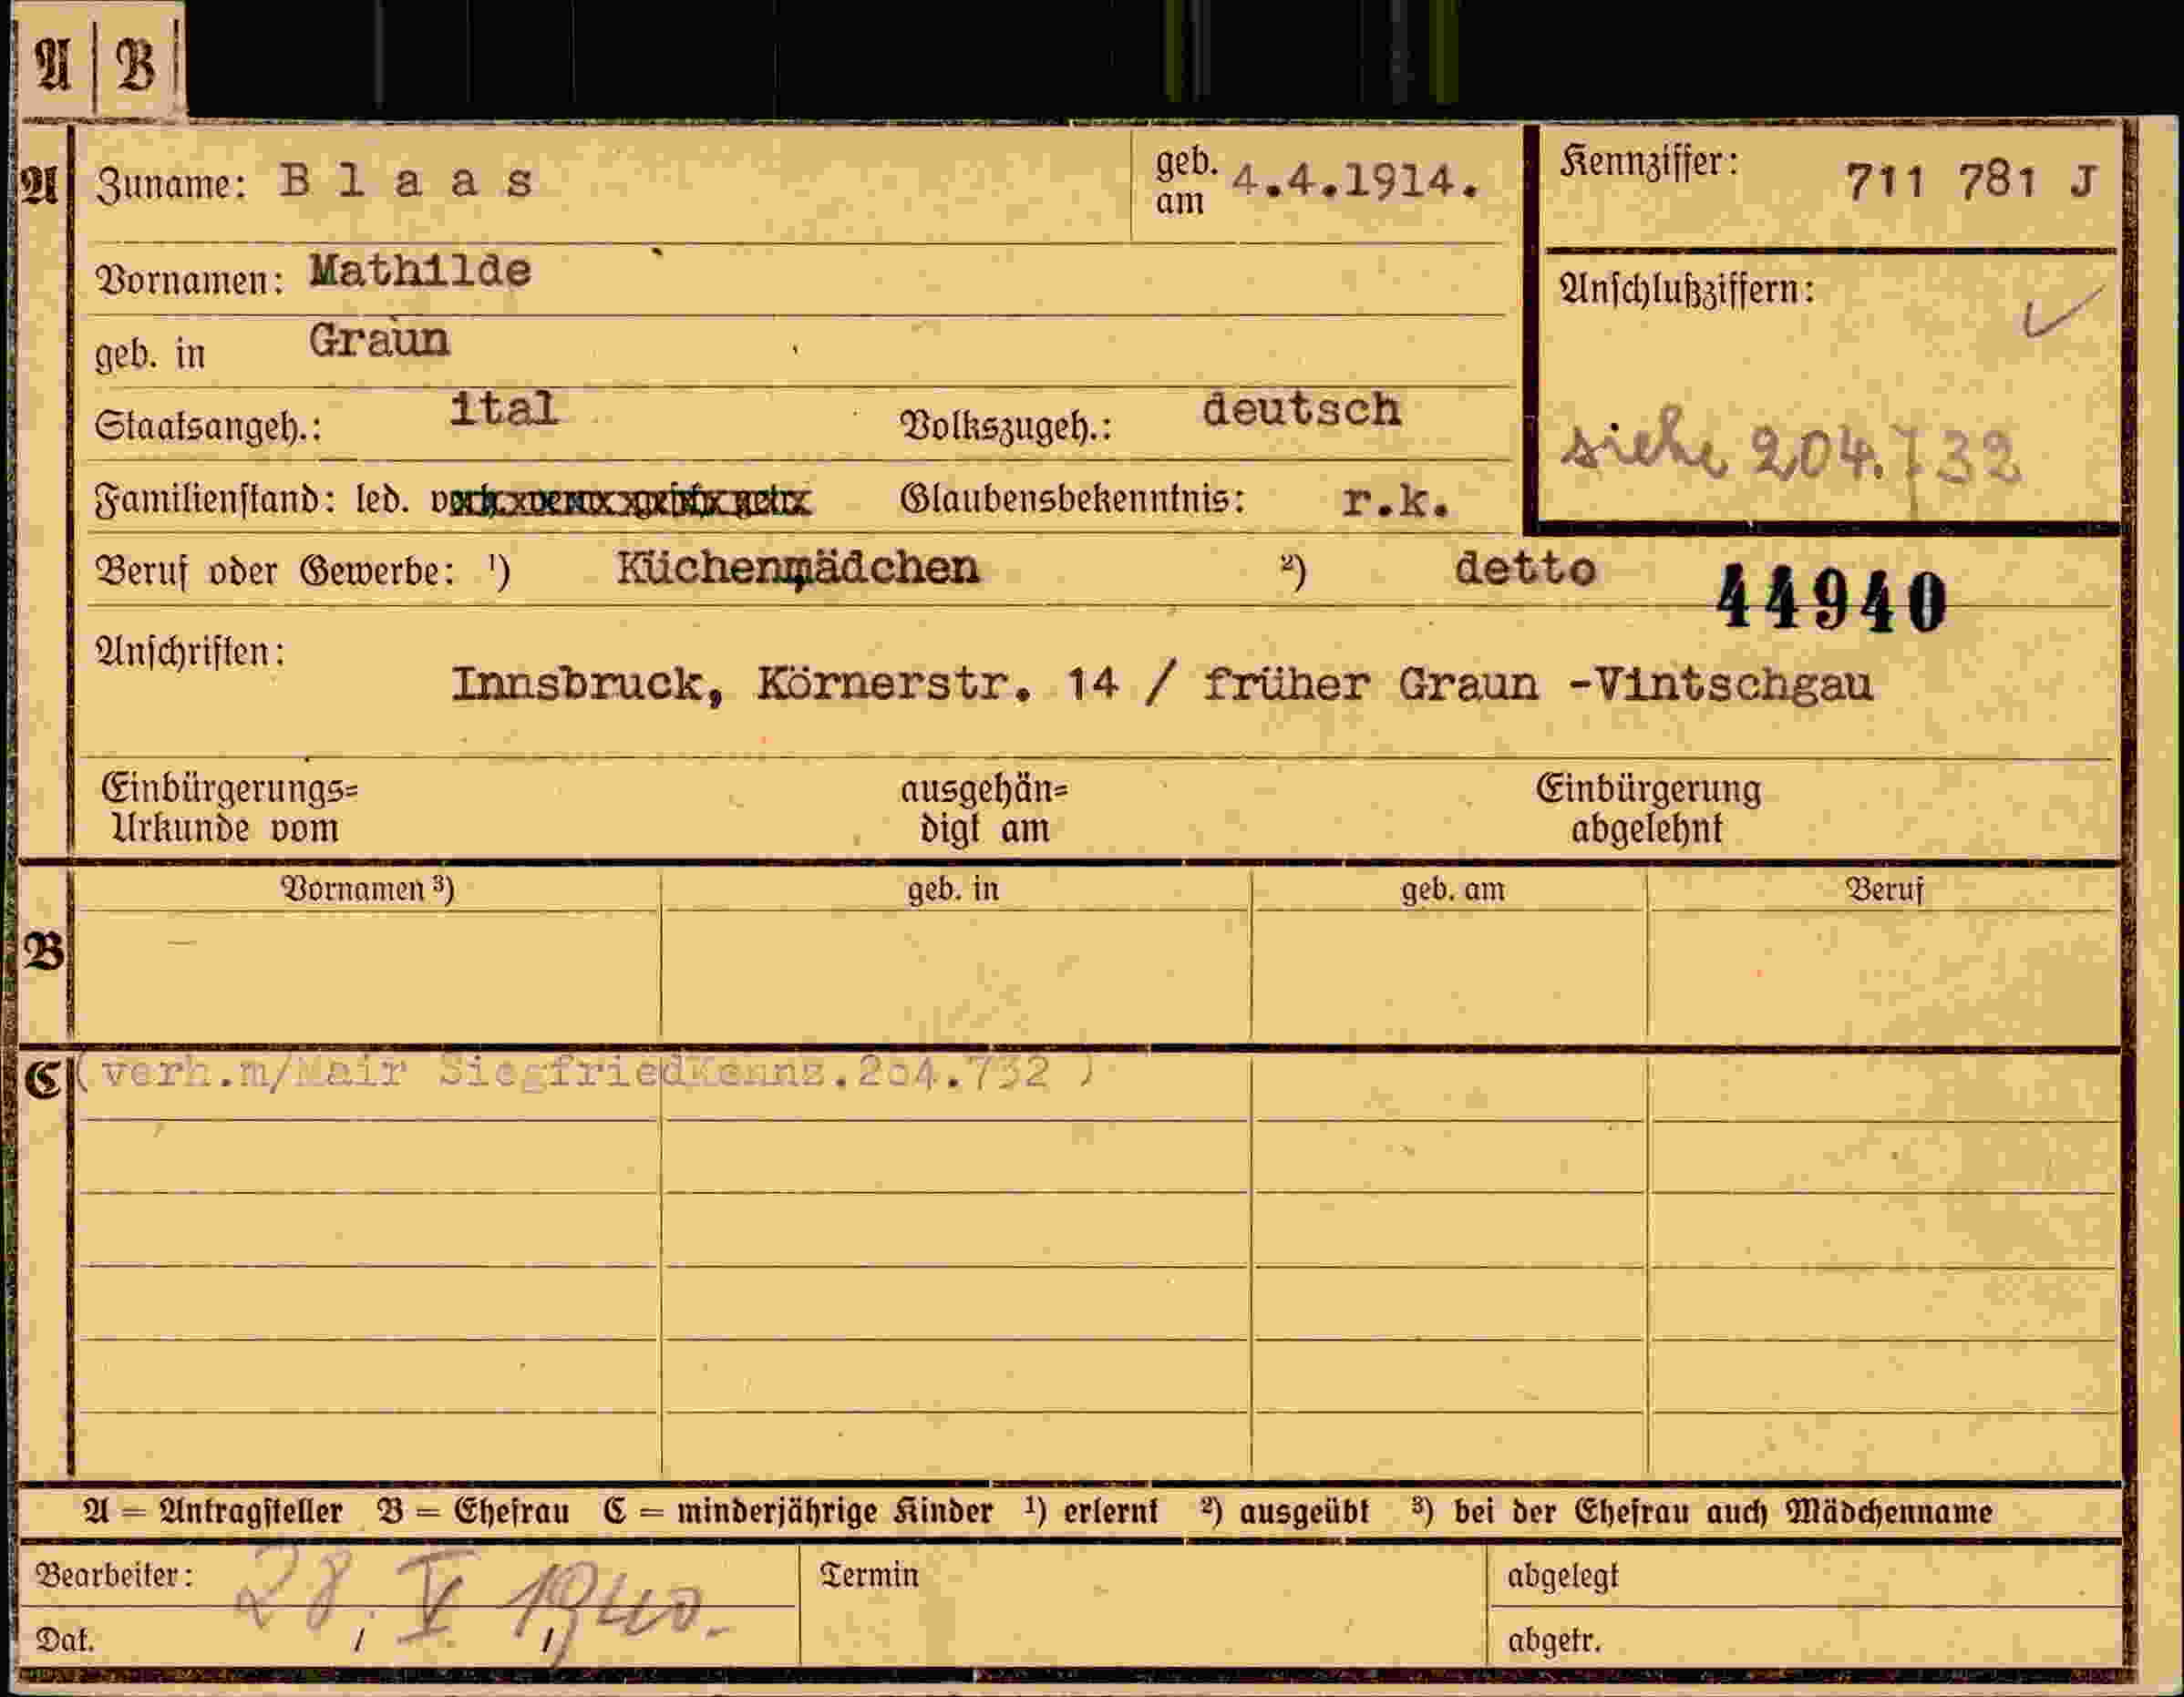 A B
A Zuname: Blaas geb. am 4.4.1914. Kennziffer: 711 781 J
Vornamen: Mathilde
Anschlußziffern:
geb. in Graun
Staatsangeh.: ital Volkszugeh.: deutsch
siehe 204.732
Familienstand: led. Glaubensbekenntnis: r.k.
Beruf oder Gewerbe: ¹) Küchenmädchen ²) detto
44940
Anschriften:
Innsbruck, Körnerstr. 14 / früher Graun -Vintschgau
Einbürgerungs= ausgehän= Einbürgerung
Urkunde vom digt am abgelehnt
Vornamen ³) geb. in geb. am Beruf
B
C (verh.m/Mair Siegfried Kennz.204.732 )
A = Antragsteller B = Ehefrau C = minderjährige Kinder ¹) erlernt ²) ausgeübt ³) bei der Ehefrau auch Mädchenname
Bearbeiter: 28. V 1940. Termin abgelegt
Dat. / / abgetr.